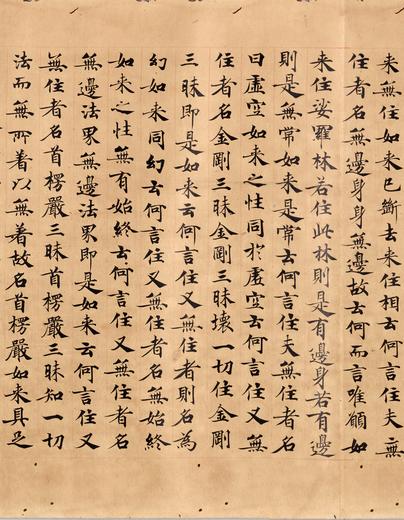 来無住如来已斷去来住相云何言住夫無
住者名無邊身身無邊故云何而言唯願如
来住娑羅林若住此林則是有邊身若有邊
則是無常如来是常云何言住夫無住者名
曰虛空如来之性同於虛空云何言住又無
住者名金剛三昧金剛三昧壞一切住金剛
三昧即是如来云何言住又無住者則名為
幻如来同幻云何言住又無住者名無始終
如来之性無有始終云何言住又無住者名
無邊法界無邊法界即是如来云何言住又
無住者名首楞嚴三昧首楞嚴三昧知一切
法而無所着以無着故名首楞嚴如来具足